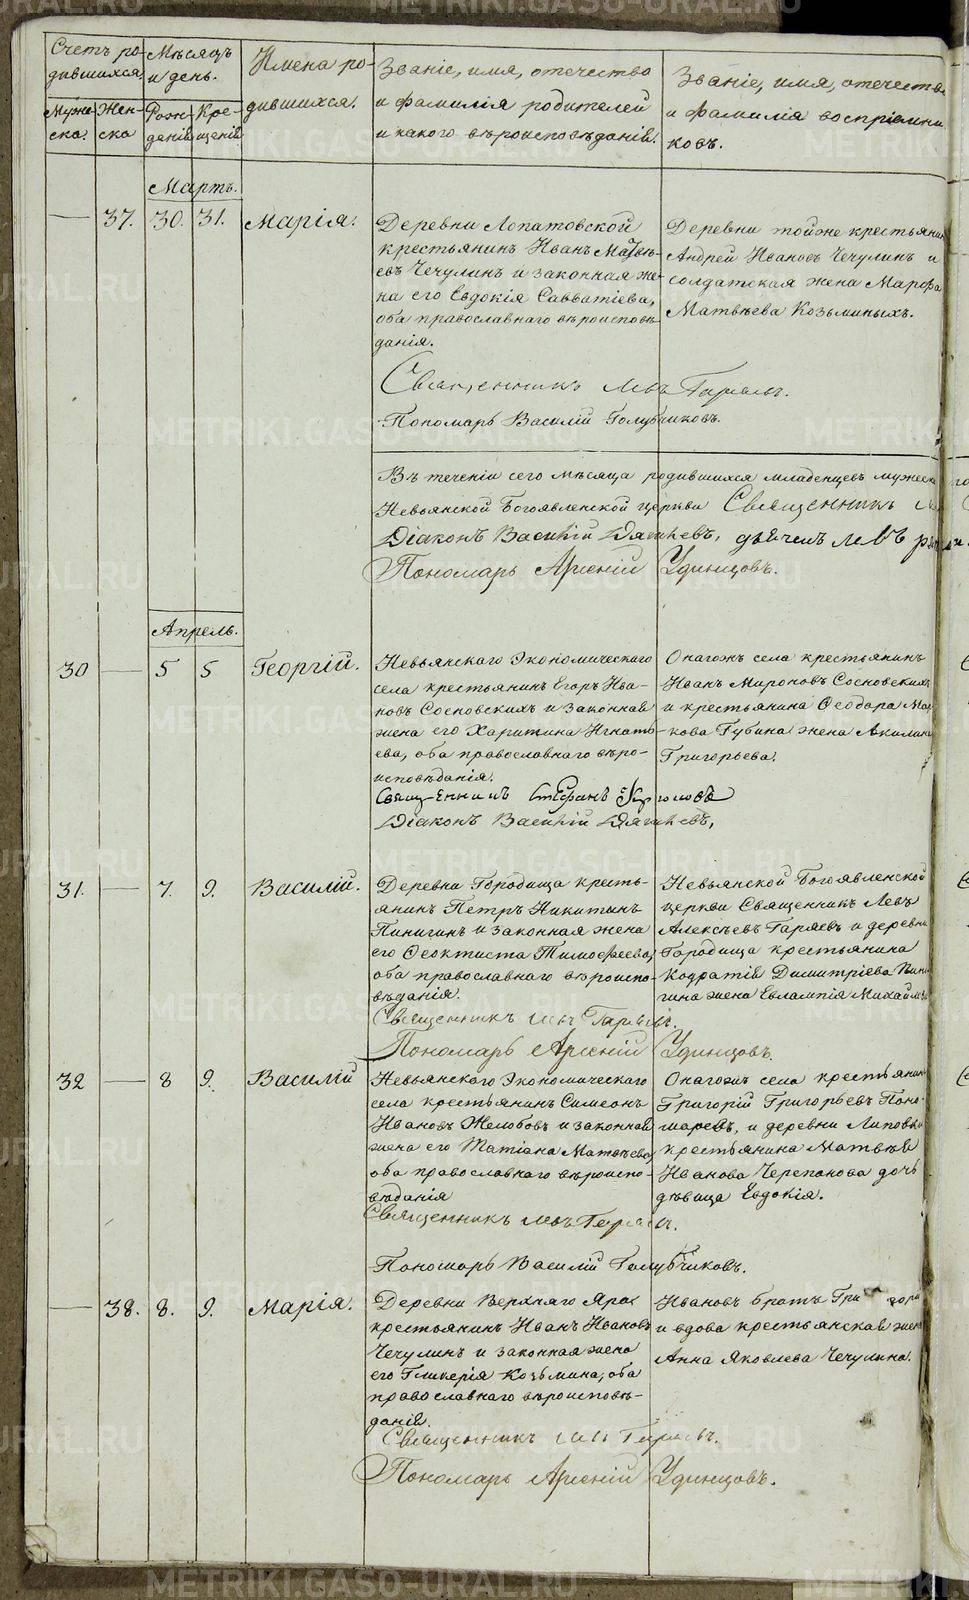 Счетъ ро-
дившихся.
Мѣсяцъ
и день.
Имена ро-
дившихся.
Званіе, имя, отечество
и фамилія родителей
и какого вѣроисповѣданія.
Званіе, имя, отечество
и фамилія воспріемни
ковъ.
Муже
ска.
Жен-
ска
Рож-
денія
Кре-
щенія
Мартъ.
37. 30. 31. Марія.
Деревни Лопатовской
крестьянинъ Иванъ Матвѣ-
евъ Чечулинъ и законная же-
на его Евдокія Савватіева,
оба православнаго вѣроисповѣ-
данія.
Деревни тойже крестьянин
Андрей Ивановъ Чечулинъ и
солдатская жена Марѳа
Матвѣева Козьминыхъ.
Священникъ Левъ Гаряевъ.
Пономарь Василій Голубчиковъ.
Въ теченіи сего мѣсяца родившихся младенцевъ мужеска
Невьянской Богоявленской церкви Священникъ
Діаконъ Василій Дягилевъ,
Пономарь Арсеній Удинцовъ.
Апрель.
30 5 5 Георгій.
Невьянскаго Экономическаго
села крестьянинъ Егоръ Ива-
новъ Сосновскихъ и законная
жена его Харитина Игнать-
ева, оба православнаго вѣро-
исповѣданія.
Онагожъ села крестьянинъ
Иванъ Мироновъ Сосновскихъ
и крестьянина Ѳеодора Мар
кова Губина жена Акилина
Григорьева.
Священникъ Стефанъ
Діаконъ Василій Дягилевъ,
31. 7. 9. Василій.
Деревни Городища кресть-
янинъ Петръ Никитинъ
Пинигинъ и законная жена
его Ѳеоктиста Тимоѳеева,
оба православнаго вѣроиспо-
вѣданія.
Невьянской Богоявленской
церкви Священникъ Левъ
Алексѣевъ Гаряевъ и деревни
Городища крестьянина
Кодратія Димитріева Пини
гина жена Евлампія Михайлова
Священникъ Левъ Гаряевъ.
Пономарь Арсеній Удинцовъ.
32 8 9. Василій
Невьянскаго Экономическаго
села крестьянинъ Симеонъ
Ивановъ Желобовъ и законная
жена его Татіана Матвѣева,
оба православнаго вѣроиспо-
вѣданія
Онагожъ села крестьянин
Григорій Григорьевъ Поно-
маревъ, и деревни Липовки
крестьянина Матвѣя
Иванова Черепанова дочь
дѣвица Евдокія.
Священникъ Левъ Гаряевъ.
Пономарь Василій Голубчиковъ.
38. 8. 9. Марія.
Деревни Верхняго Яра
крестьянинъ Иванъ Ивановъ
Чечулинъ и законная жена
его Гликерія Козьмина, оба
православнаго вѣроисповѣ-
данія.
Ивановъ братъ Григорій
и вдова крестьянская жена
Анна Яковлева Чечулина.
Священникъ Левъ Гаряевъ.
Пономарь Арсеній Удинцовъ.
METRIKI.GASO-URAL.RU